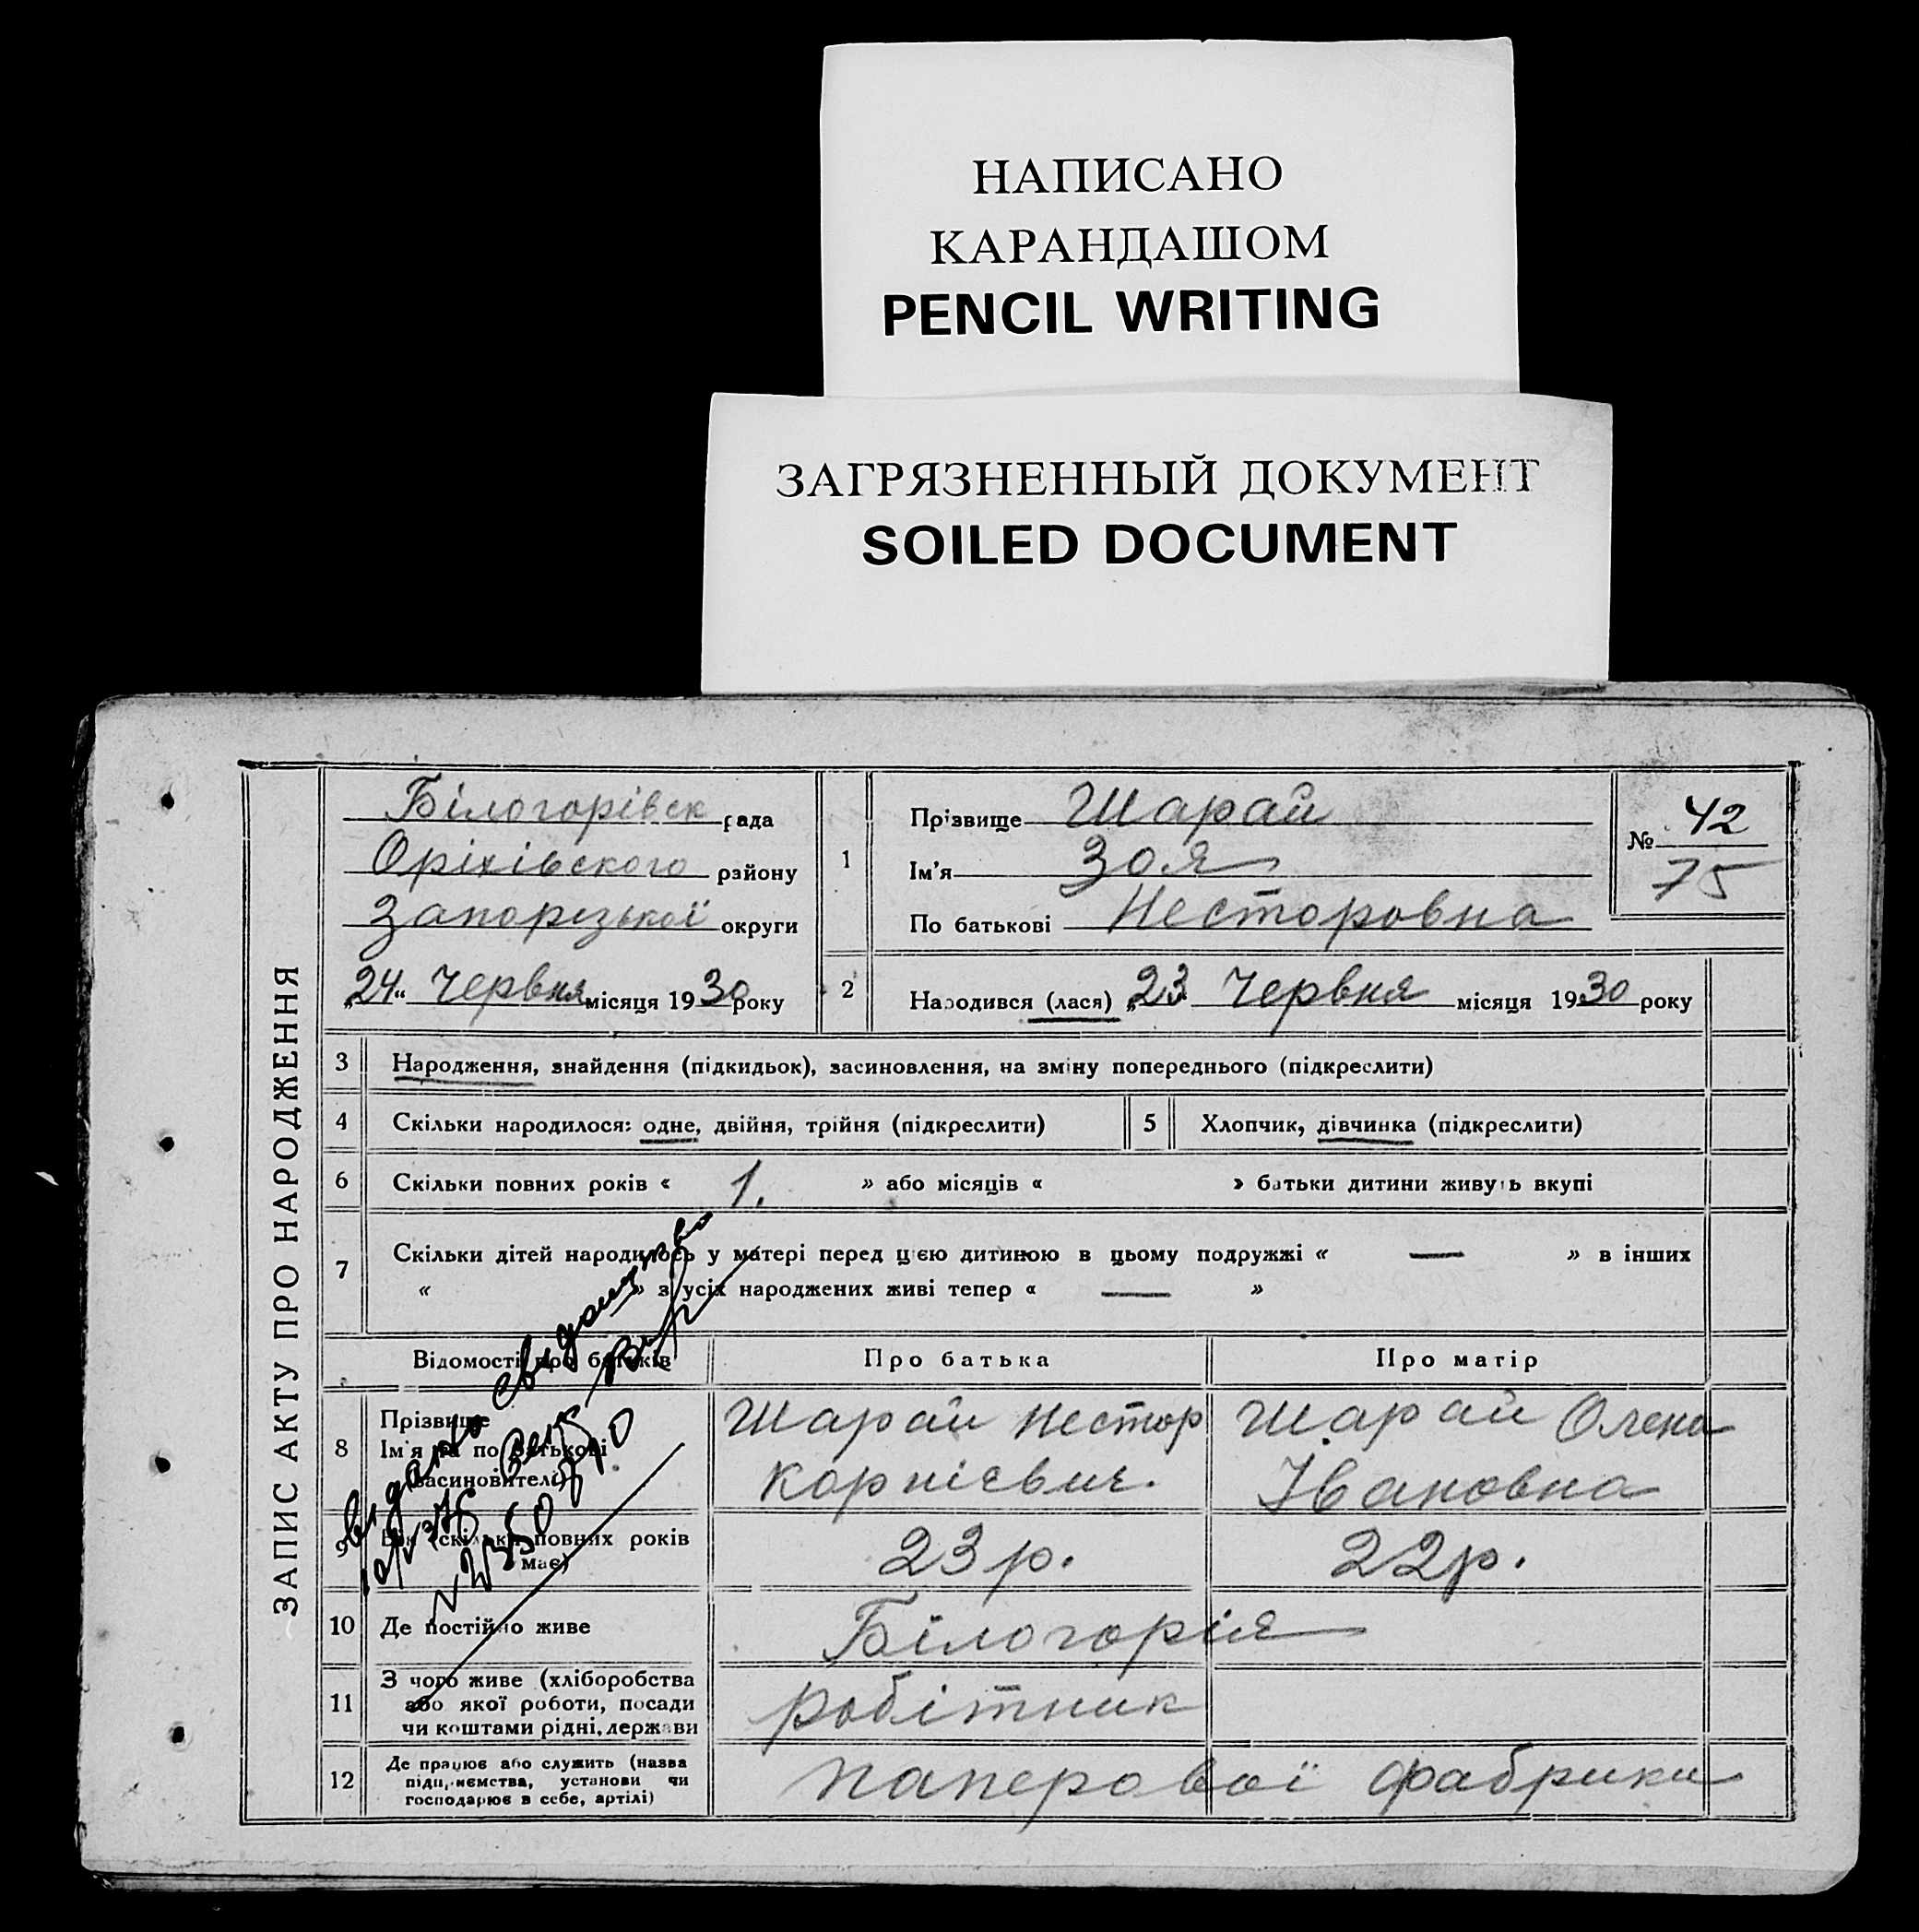 НАПИСАНО
КАРАНДАШОМ
PENCIL WRITING
ЗАГРЯЗНЕННЫЙ ДОКУМЕНТ
SOILED DOCUMENT
ЗАПИС АКТУ ПРО НАРОДЖЕННЯ
Білогорівск рада
Оріхівского району
Запорізької округи
„24“ Червня місяця 1930 року
1
Прізвище Шарай
Ім'я Зоя
По батькові Несторовна
№ 42
75
2 Народився (лася) „23 Червня місяця 1930 року
3 Народження, знайдення (підкидьок), засиновлення, на зміну попереднього (підкреслити)
4 Скільки народилося: одне, двійня, трійня (підкреслити) 5 Хлопчик, дівчинка (підкреслити)
6 Скільки повних років « 1. » або місяців « » батьки дитини живуть вкупі
7 Скільки дітей народилось у матері перед цією дитиною в цьому подружжі « — » в інших
« » з усіх народжених живі тепер « — »
Відомості про батьків Про батька Про матір
8 Прізвище
Ім'я та по батькові
(засиновителі)
Шарай Нестор
Корнієвич.
Шарай Олена
Івановна
9 Вік (скільки повних років
має)
23 р. 22 р.
10 Де постійно живе Білогорія
11 З чого живе (хліборобства
або якої роботи, посади
чи коштами рідні, держави
робітник
12 Де працює або служить (назва
підприємства, установи чи
господарює в себе, артілі)
паперової фабрики
свидоцтво